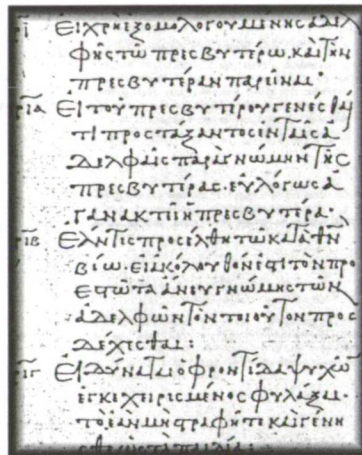 ρι Εἰ χρὴ ἐξομολογουμένης ἀδελ
φῆς τῶ πρεσβυτέρω, καὶ τὴν
πρεσβυτέραν παρεῖναι·
ρια Εἰ τοῦ πρεσβυτέρου γενέσθαι
τι προστάξαντος ἐν ταῖς ἀ
δελφαῖς παρὰ γνώμην τῆς
πρεσβυτέρας· εὐλόγως ἀ
γανακτεῖ ἡ πρεσβυτέρα·
ριβ Ἐάν τις προσέλθη τῶ κατὰ θν
βίω· εἰ ἀκόλουθόν ἐστι τὸν προ
εστῶτα ἄνευ γνώμης τῶν
ἀδελφῶν τὸν τοιοῦτον προσ
δέχεσθαι:
ριγ Εἰ δύναται ὁ φροντίδα ψυχῶν
ἐγκεχειρισμένος φυλάξαι·
τὸ ἐὰν μὴ στραφῆτε καὶ γένη
σθε ὡς τὰ παιδία: